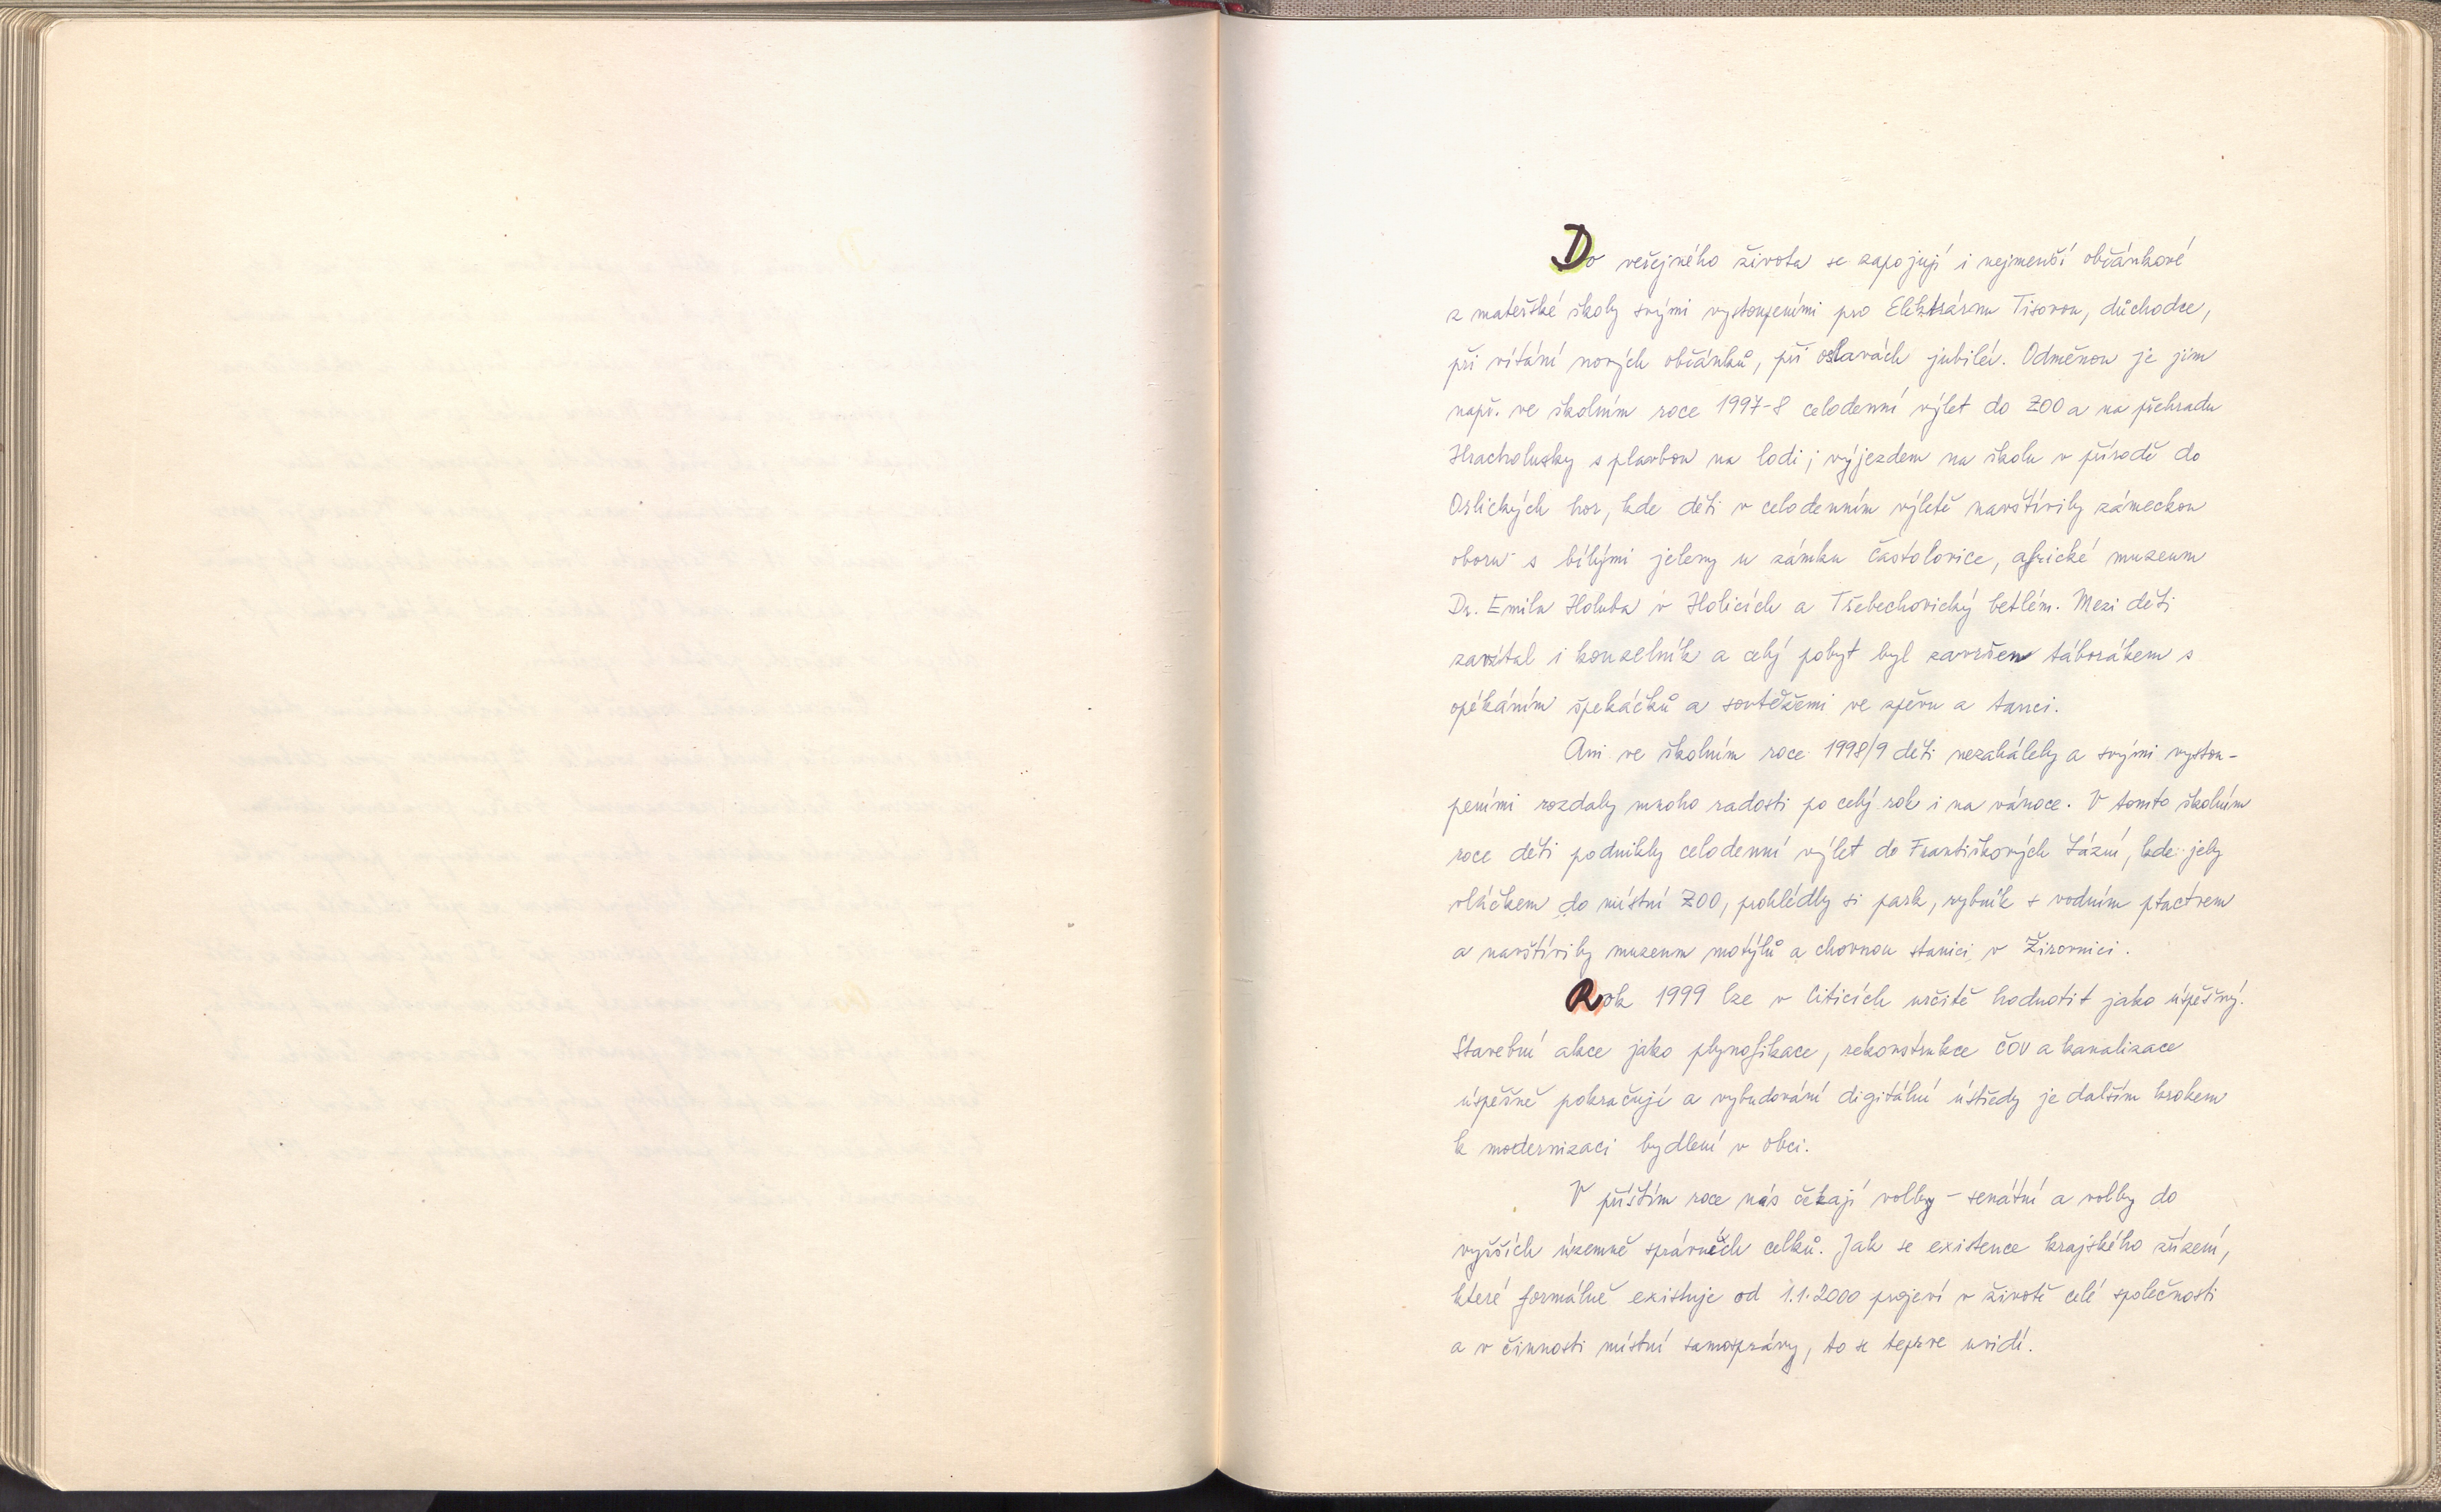 Do veřejného života se zapojují i nejmenší občánkové
z mateřské školy svými vystoupeními pro Elektrárnu Tisovou, důchodce,
při vítání nových občánků, při oslavách jubileí. Odměnou je jim
např. ve školním roce 1997-8 celodenní výlet do ZOO a na přehradu
Hracholusky s plavbou na lodi; výjezdem na školu v přírodě do
Orlických hor, kde děti v celodenním výletě navštívily zámeckou
oboru s bílými jeleny u zámku Častolovice, africké muzeum
Dr. Emila Holuba v Holicích a Třebechovický betlém. Mezi děti
zavítal i kouzelník a celý pobyt byl završen táborákem s
opékáním špekáčků a soutěžemi ve zpěvu a tanci.
Ani ve školním roce 1998/9 děti nezahálely a svými vystou-
peními rozdaly mnoho radosti po celý rok i na vánoce. V tomto školním
roce děti podnikly celodenní výlet do Františkových Lázní, kde jely
vláčkem do místní ZOO, prohlédly si park, rybník s vodním ptactvem
a navštívily muzeum motýlů a chovnou stanici v Žirovnici.
Rok 1999 lze v Citicích určitě hodnotit jako úspěšný.
Stavební akce jako plynofikace, rekonstrukce ČOV a kanalizace
úspěšně pokračují a vybudování digitální ústředy je dalším krokem
k modernizaci bydlení v obci.
V příštím roce nás čekají volby - senátní a volby do
vyšších územně správních celků. Jak se existence krajského zřízení,
které formálně existuje od 1.1.2000 projeví v životě celé společnosti
a v činnosti místní samosprávy, to se teprve uvidí.